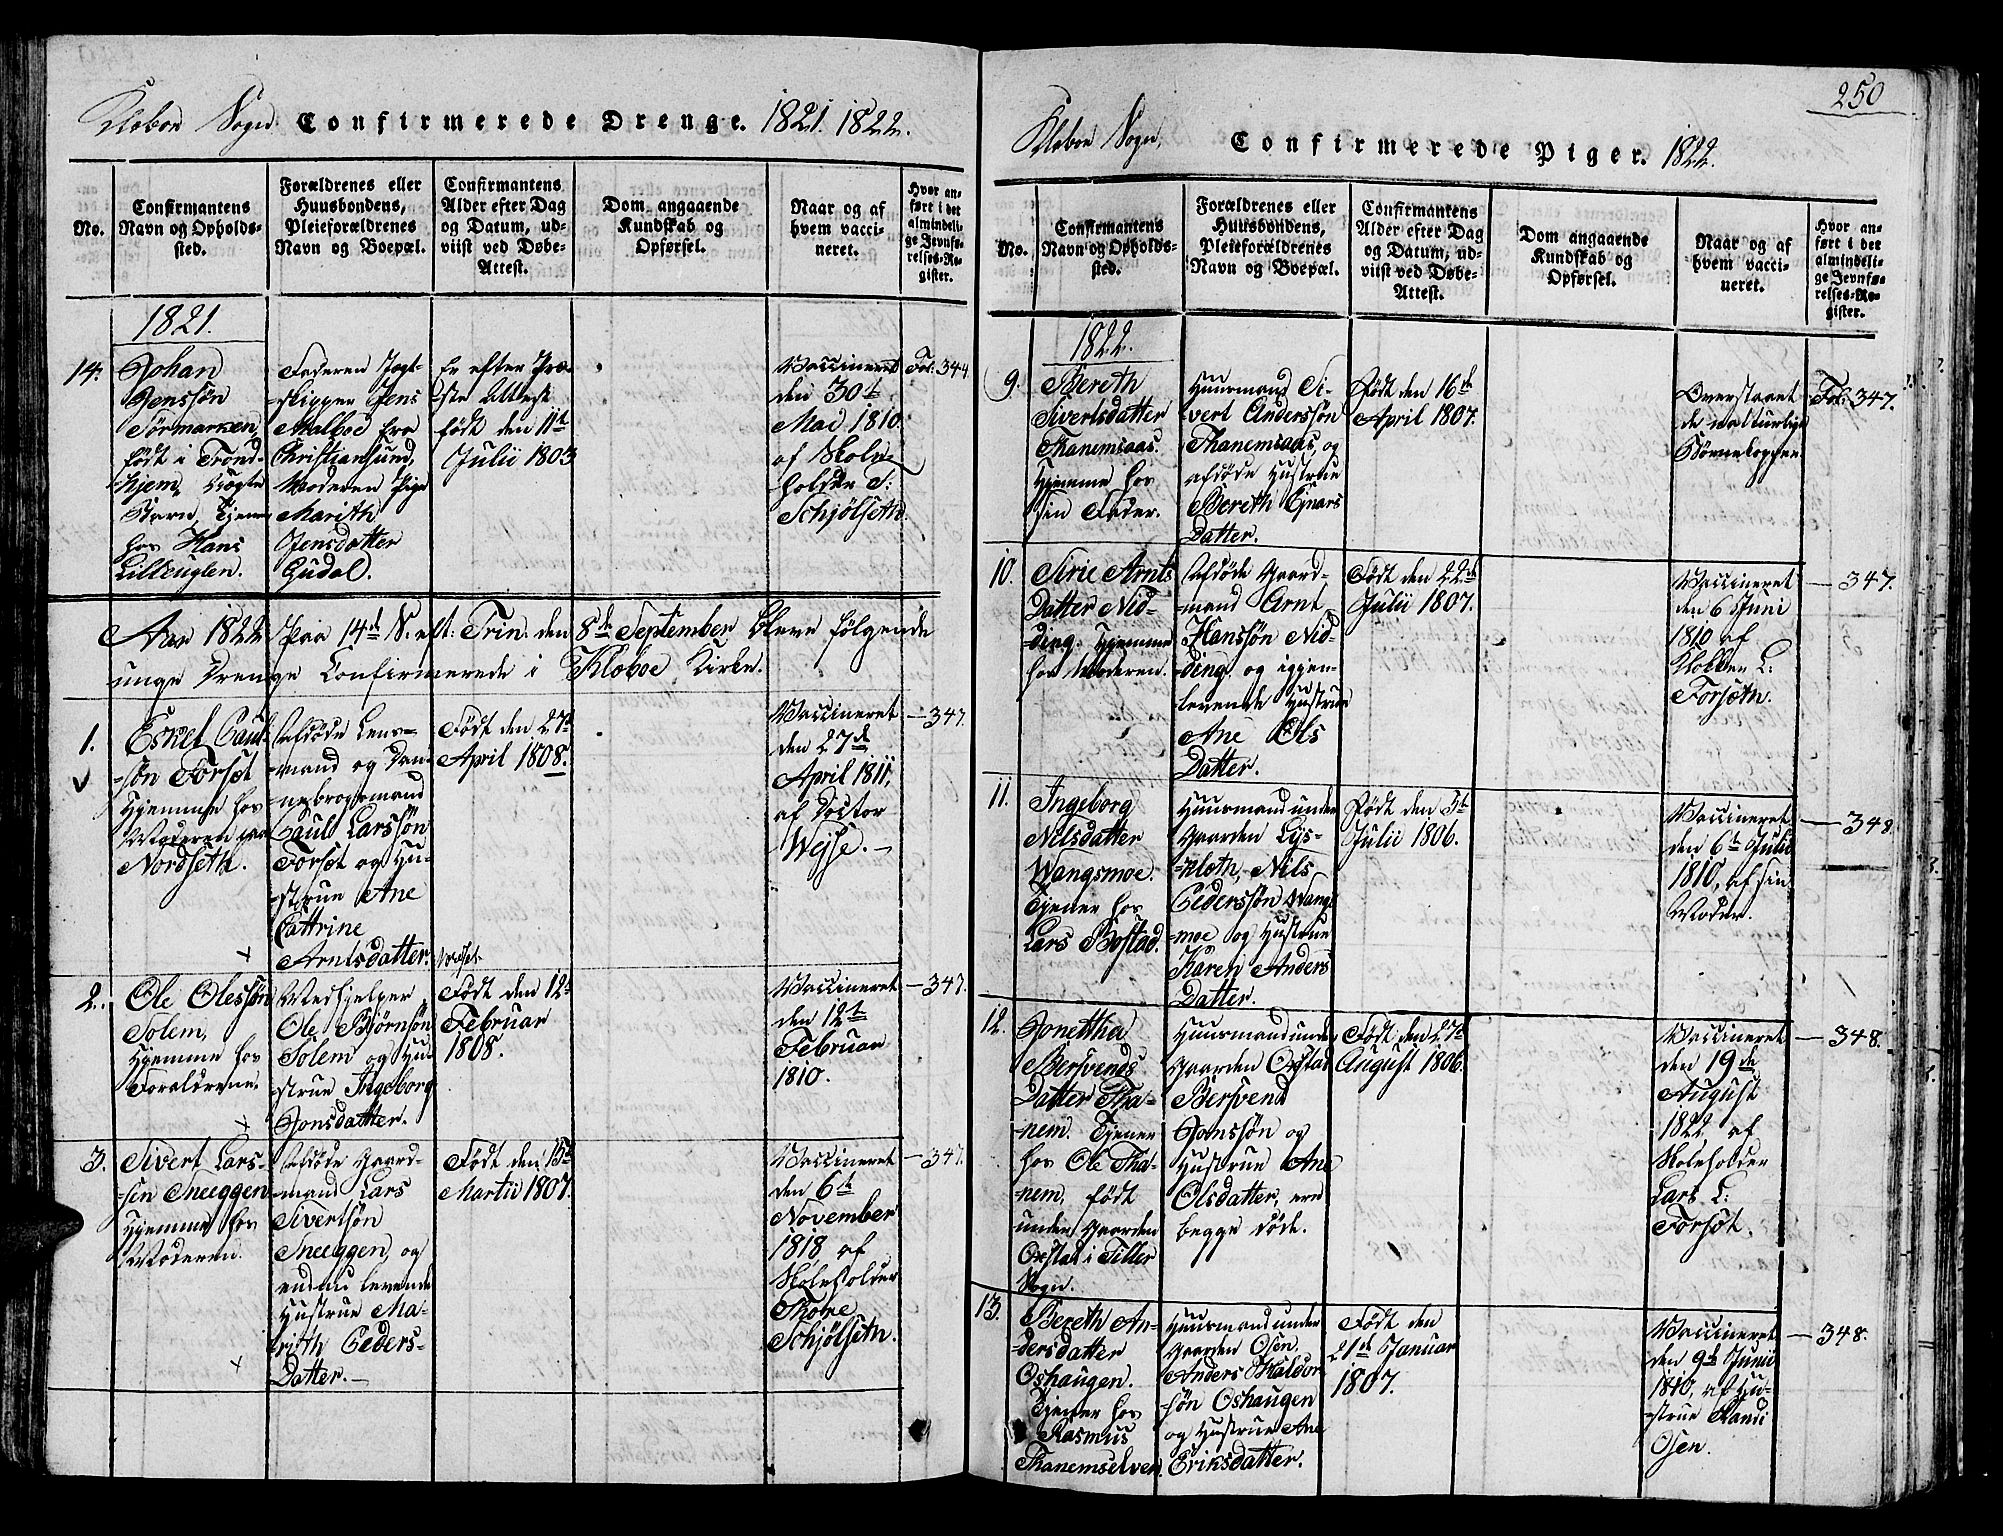 Klæboe Sogn. Confirmerede Drenge. 1821. 1822.
No.
Confirmantens
Navn og Opholds-
sted.
Forældrenes eller
Huusbondens,
Pleieforældrenes
Navn og Boepæl.
Confirmantens
Alder efter Dag
og Datum, ud-
viist ved Døbe-
Attest.
Dom angaaende
Kundskab og
Opførsel.
Naar og af
hvem vacci-
neret.
Hvor an-
ført i det
almindeli-
ge Jevnfø-
relses-Re-
gister.
1821.
14.
Johan
Jenssøn
Tørmarken,
født i Trond-
hjem,
Tjener
hos Hans
Lilleuglen.
Faderen Jagt-
skipper Jens
Malboe fra
Christiansund,
Moderen Pige
Marith
Jensdatter
Gudal.
Er efter Præ-
ste Attest
født den 11te
Julii 1803
Vaccineret
den 30te
Mai 1810.
af Skole-
holder T:
Schjølseth.
Fol: 344.
Aar 1822 Paa 14de S. eft: Trin: den 8de September bleve følgende
unge Drenge Confirmerede i Kloboe Kirke.
1.
Eskel Paul-
søn Forsæt
Hjemme hos
Moderen paa
Nordseth.
Afdøde Lens-
mand og Dan-
nebrogsmand
Paul Larssøn
Forsæt og Hu-
strue Ane
Cattrine
Arntsdatter.
Født den 27de
April 1808.
Vaccineret
den 27de
April 1811,
af Doctor
Wejse.-
-347.
2.
Ole Olessøn
Solem,
Hjemme hos
Forældrene.
Medhjelper
Ole Bjørnsøn
Solem og Hu-
strue Ingeborg
Jonsdatter.
Født den 12te
Februar
1808.
Vaccineret
den 12te
Februar
1810.
-347.
3.
Sivert Lars-
søn Sneeggen
Hjemme hos
Moderen.
Afdøde Gaard-
mand Lars
Sivertsøn
Sneeggen, og
endnu levende
Hustrue Ma-
rith Peders-
Datter.-
Født den 15de
Martii 1807.
Vaccineret
den 6te
November
1818 af
Skoleholder
Thore
Schjølseth.
-347.
250
Klæboe Sogn. Confirmerede Piger. 1822.
No.
Confirmantens
Navn og Opholds-
sted.
Forældrenes eller
Huusbondens,
Pleieforældrenes
Navn og Boepæl.
Confirmantens
Alder efter Dag
og Datum, ud-
viist ved Døbe-
Attest.
Dom angaaende
Kundskab og
Opførsel.
Naar og af
hvem vacci-
neret.
Hvor an-
ført i det
almindeli-
ge Jevnfø-
relses-Re-
gister.
1822.
9.
Bereth
Sivertsdatter
Thanemsaas.
Hjemme hos
sin Fader.
Huusmand Si-
vert Anderssøn
Thanemsaas, og
afdøde Hustrue
Bereth Ejnars
Datter.
Født den 16de
April 1807.
Overstaaet
de naturlige
Børnekopper.
Fol: 347.
10.
Sirie Arnts
Datter Nid-
ding. Hjemme
hos Moderen.
Afdøde Gaard-
mand Arnt
Hanssøn Nid-
ding, og igjen-
levende Hustrue
Ane Ols
Datter.
Født den 22de
Julii 1807.
Vaccineret
den 6 Juni
1810 af
Klokker L:
Forsæth.
-347.
11.
Ingeborg
Nilsdatter
Wangsmoe.
Tjener hos
Lars Bostad.
Huusmand under
Gaarden Lys-
kloth, Nils
Pederssøn Wangs-
moe og Hustrue
Karen Anders
Datter.
Født den 5te
Julii 1806.
Vaccineret
den 6te Julii
1810, af sin
Moder.
-348.
12.
Jonettha
Bersvends
Datter Tha-
nem. Tjener
hos Ole Tha-
nem. født
under Gaarden
Orstad i Tiller
Sogn.
Huusmand under
Gaarden Orstad
Bersvend
Jonssøn og
Hustrue Ane
Olsdatter, ere
begge døde.
Født den 27de
August 1806.
Vaccineret
den 19de
August
1822 af
Skoleholder
Lars L:
Forsæt.
-348.
13.
Bereth An-
dersdatter
Oshaugen.
Tjener hos
Rasmus
Thanemselven
Huusmand under
Gaarden Osen.
Anders Haldor-
søn Oshaugen
og Hustrue Ane
Eriksdatter.
Født den
21de Januar
1807.
Vaccineret
den 9de Junii
1810, af Hu-
strue Randi
Osen.
-348.